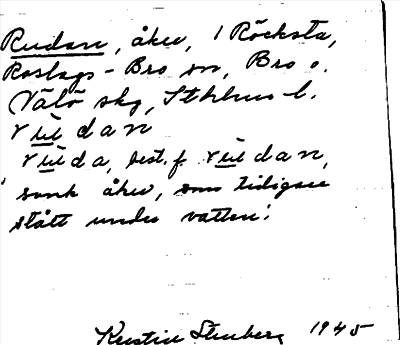 Rudan, åker, i Röcksta,
Roslags-Bro sn, Bro o.
Vätö skg, Sthlms l.
rūdan
rūda, best. f. rūdan,
'sank åker, som tidigare
stått under vatten'.
Kerstin Stenberg 1945